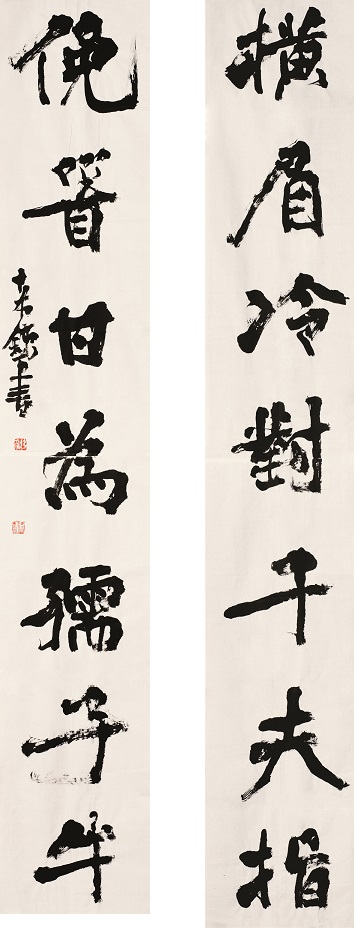 橫眉冷對千夫指
俛首甘為孺子牛